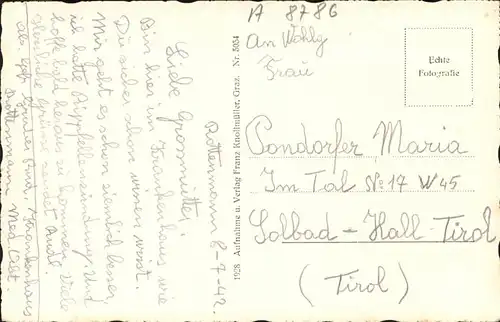 A 8786
An Wohlg
Frau
Pondorfer Maria
Im Tal No 17 W45
Solbad - Hall - Tirol
(Tirol)
Echte
Fotografie
1928 Aufnahme u. Verlag Franz Knollmüller, Graz. Nr. 5034
Rottenmann 8-7-42.
Liebe Grossmutter.
Bin hier im Krankenhaus wie
Du sicher schon wissen wirst.
Mir geht es schon ziemlich besser,
ich hatte Rippfellenzündung und
hoffe bald heraus zu kommen, viele
herzliche Grüsse sendet Andl.
Krankenhaus
Rottenmann Med. Abt.